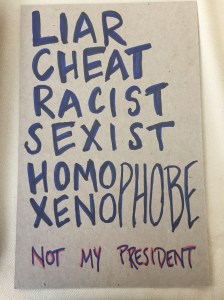 LIAR
CHEAT
RACIST
SEXIST
HOMOPHOBE
XENO
NOT MY PRESIDENT